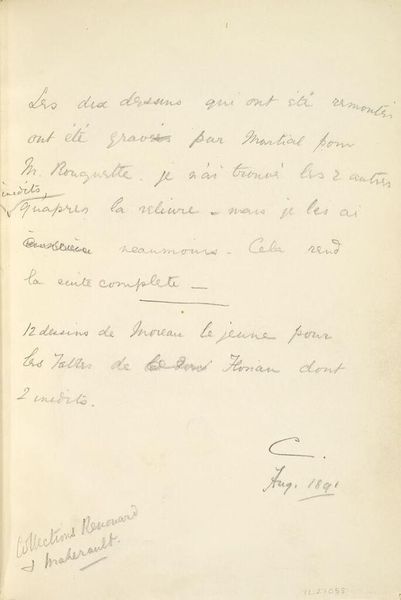 Les dix dessins qui ont été remontés
ont été gravés par Martial pour
M. Rouquette. je n'ai trouvé les 2 autres
inédits,
qu'après la reliure - mais je les ai
neaumoins. Cela rend
la suite complete —
12 dessins de Moreau le jeune pour
les Fables de Florian dont
2 inédits.
C.
Aug. 1891
Collections Renouard
& Maherault.